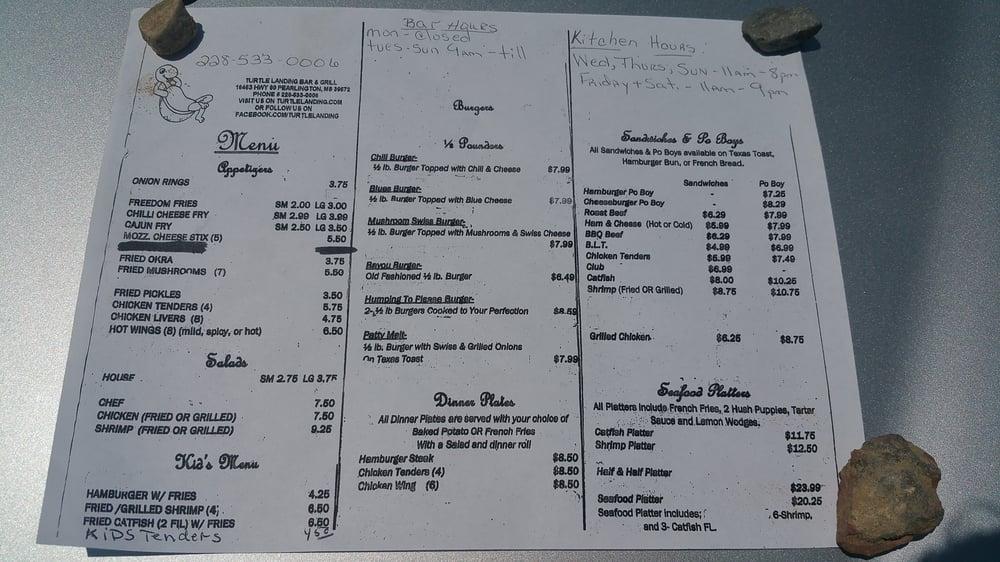 228-533-0006
TURTLE LANDING BAR & GRILL
16463 HWY 90 PEARLINGTON, MS 39572
PHONE # 228-533-0006
VISIT US ON TURTLELANDING.COM
OR FOLLOW US ON
FACEBOOK.COM/TURTLELANDING
Menu
Appetizers
ONION RINGS 3.75
FREEDOM FRIES SM 2.00 LG 3.00
CHILLI CHEESE FRY SM 2.99 LG 3.99
CAJUN FRY SM 2.50 LG 3.50
MOZZ. CHEESE STIX (5) 5.50
FRIED OKRA 3.75
FRIED MUSHROOMS (7) 5.50
FRIED PICKLES 3.50
CHICKEN TENDERS (4) 5.75
CHICKEN LIVERS (8) 4.75
HOT WINGS (8) (mild, spicy, or hot) 6.50
Salads
HOUSE SM 2.75 LG 3.75
CHEF 7.50
CHICKEN (FRIED OR GRILLED) 7.50
SHRIMP (FRIED OR GRILLED) 9.25
Kid's Menu
HAMBURGER W/ FRIES 4.25
FRIED /GRILLED SHRIMP (4) 6.50
FRIED CATFISH (2 FIL) W/ FRIES 6.50
KiDS Tenders 4.50
Bar Hours
mon - Closed
tues - Sun 9am - till
Burgers
½ Pounders
Chili Burger-
½ lb. Burger Topped with Chili & Cheese $7.99
Blues Burger-
½ lb. Burger Topped with Blue Cheese $7.99
Mushroom Swiss Burger-
½ lb. Burger Topped with Mushrooms & Swiss Cheese
$7.99
Bayou Burger-
Old Fashioned ½ lb. Burger $6.49
Humping To Please Burger-
2-½ lb Burgers Cooked to Your Perfection $8.59
Patty Melt-
½ lb. Burger with Swiss & Grilled Onions
On Texas Toast $7.99
Dinner Plates
All Dinner Plates are served with your choice of
Baked Potato OR French Fries
With a Salad and dinner roll
Hamburger Steak $8.50
Chicken Tenders (4) $8.50
Chicken Wing (6) $8.50
Kitchen Hours
Wed, Thurs, Sun - 11am - 8pm
Friday + Sat. - 11am - 9pm
Sandwiches & Po Boys
All Sandwiches & Po Boys available on Texas Toast,
Hamburger Bun, or French Bread.
Sandwiches Po Boy
Hamburger Po Boy - $7.25
Cheeseburger Po Boy - $8.29
Roast Beef $6.29 $7.99
Ham & Cheese (Hot or Cold) $5.99 $7.99
BBQ Beef $6.29 $7.99
B.L.T. $4.99 $6.99
Chicken Tenders $6.99 $7.49
Club $6.99 -
Catfish $8.00 $10.25
Shrimp (Fried OR Grilled) $8.75 $10.75
Grilled Chicken $6.25 $8.75
Seafood Platters
All Platters Include French Fries, 2 Hush Puppies, Tarter
Sauce and Lemon Wedges.
Catfish Platter $11.75
Shrimp Platter $12.50
Half & Half Platter
$23.99
Seafood Platter $20.25
Seafood Platter includes; 6-Shrimp,
and 3- Catfish FL.